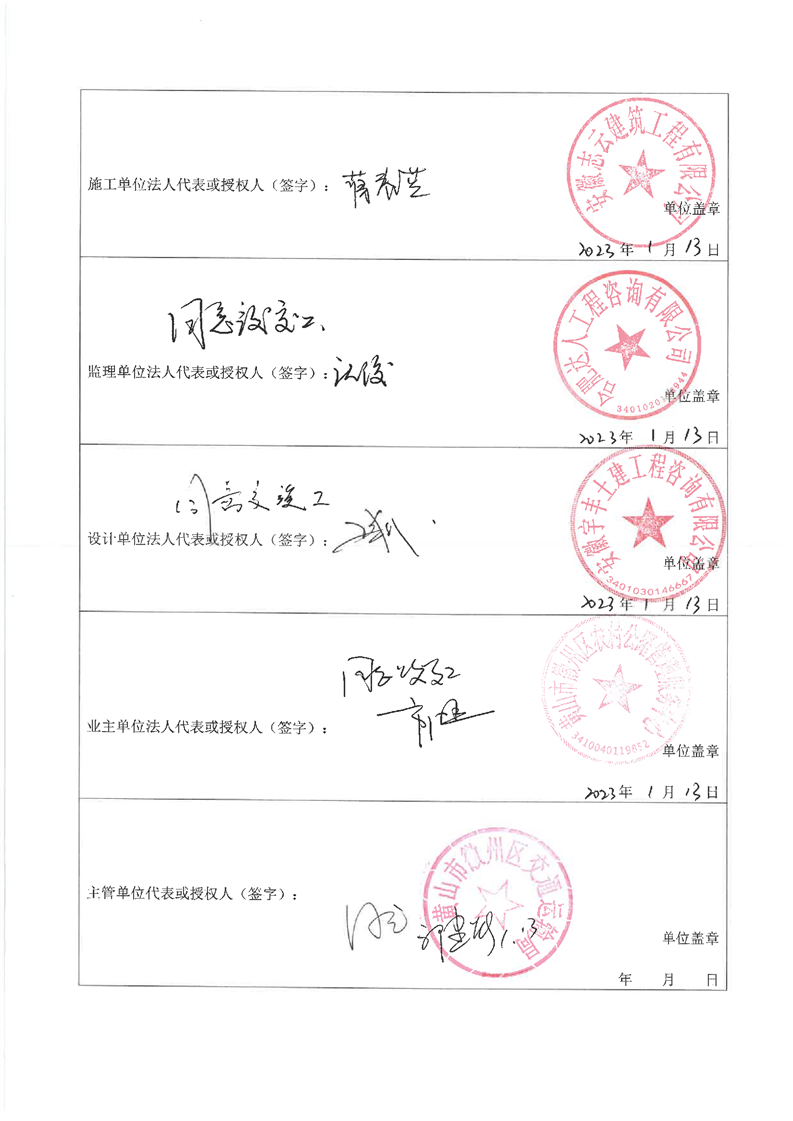 安徽志云建筑工程有限公司
施工单位法人代表或授权人（签字）：
单位盖章
2023年 1月 13日
合肥达人工程咨询有限公司
同意交工
监理单位法人代表或授权人（签字）：
单位盖章
2023年 1月 13日
安徽宇丰土建工程咨询有限公司
3401030146667
同意交竣工
设计单位法人代表或授权人（签字）：
单位盖章
2023年 1月 13日
黄山市徽州区农村公路管理服务中心
3410040119852
同意交工
业主单位法人代表或授权人（签字）：
单位盖章
2023年 1月 13日
黄山市徽州区交通运输局
主管单位代表或授权人（签字）：
同意
1.13
单位盖章
年 月 日